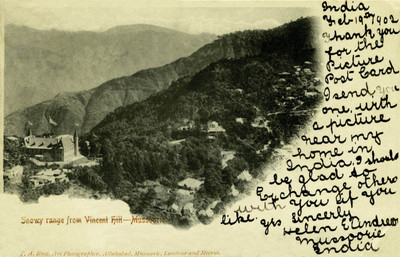 India
Feb 19th 1902
Thank you
for the
Picture
Post Card
I send you
one, with
a picture
near my
home in
India, I should
be glad to
Exchange other
with you if you
like. yrs Sincerely
Helen E Andrew
Mussoorie
India
Snowy range from Vincent Hill—Mussoorie.
T. A. Rust, Art Photographer, Allahabad, Mussoorie, Landour and Meerut.